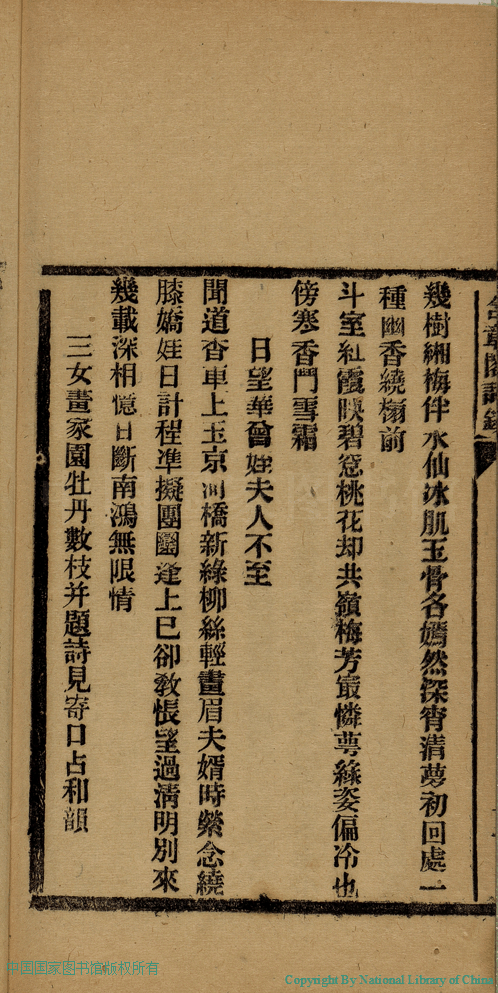 幾樹緗梅伴水仙冰肌玉骨各嫣然深宵清夢初回處一
種幽香繞榻前
斗室紅霞映碧窗桃花却共嶺梅芳最憐萼綠姿偏冷也
傍寒香鬥雪霜
日望華曾姪夫人不至
聞道香車上玉京河橋新綠柳絲輕畫眉夫婿時縈念繞
膝嬌娃日計程準擬團圞逢上巳卻教悵望過清明別來
幾載深相憶目斷南鴻無限情
三女畫家園牡丹數枝并題詩見寄口占和韻
中国国家图书馆版权所有
Copyright By National Library of China